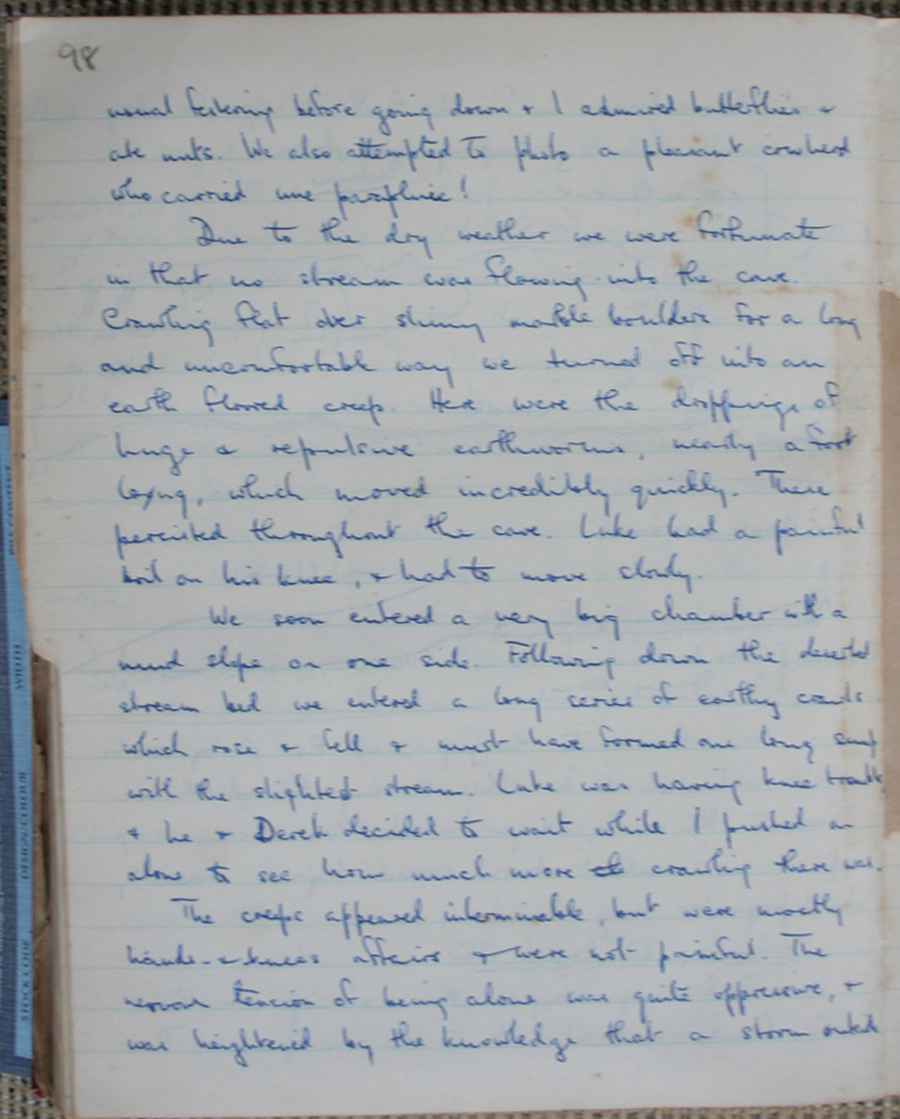 98
usual festering before going down & I admired butterflies &
ate nuts. We also attempted to photo a pleasant cowherd
who carried une parapluie!
Due to the dry weather we were fortunate
in that no stream was flowing into the cave.
Crawling flat over slimy marble boulders for a long
and uncomfortable way we turned off into an
earth floored creep. Here were the droppings of
huge & repulsive earthworms, nearly a foot
long, which moved incredibly quickly. These
persisted throughout the cave. Luke had a painful
boil on his knee, & had to move slowly.
We soon entered a very big chamber with a
mud slope on one side. Following down the deserted
stream bed we entered a long series of earthy crawls
which rose & fell & must have formed one long sump
with the slightest stream. Luke was having knee trouble
& he & Derek decided to wait while I pushed on
alone to see how much more crawling there was.
The creeps appeared interminable, but were mostly
hands-&-knees affairs & were not painful. The
nervous tension of being alone was quite oppressive, &
was heightened by the knowledge that a storm outside
STOCK CODE
DESIGN/COLOUR
WIDTH